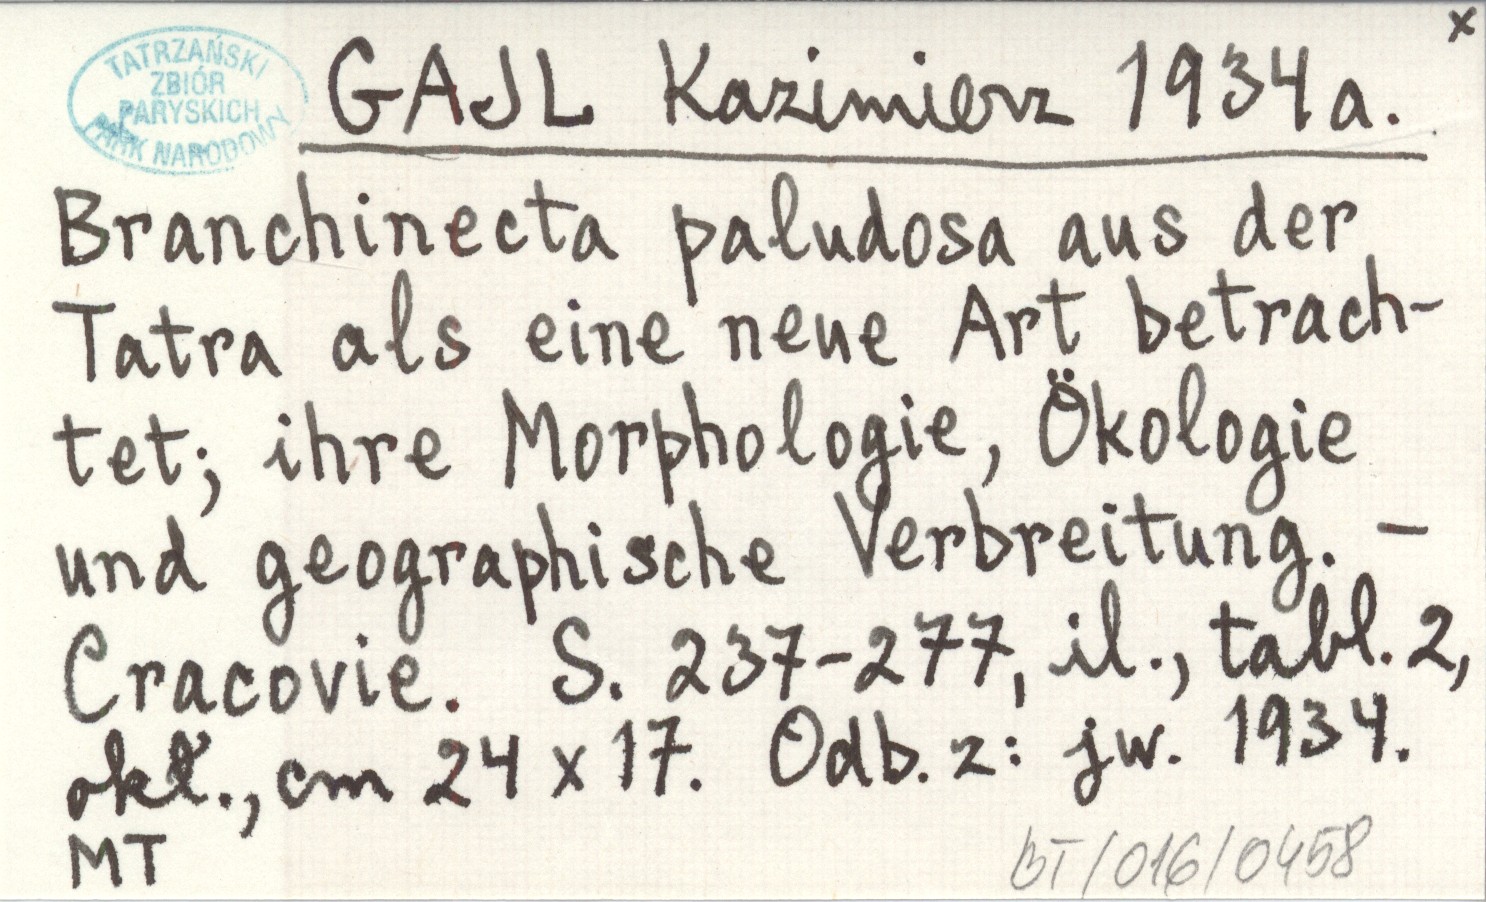 x
TATRZAŃSKI
ZBIÓR
PARYSKICH
PARK NARODOWY
GAJL Kazimierz 1934a.
Branchinecta paludosa aus der
Tatra als eine neue Art betrach-
tet; ihre Morphologie, Ökologie
und geographische Verbreitung. –
Cracovie. S. 237-277, il., tabl. 2,
okł., cm 24 x 17. Odb. z: jw. 1934.
MT
BT/016/0458